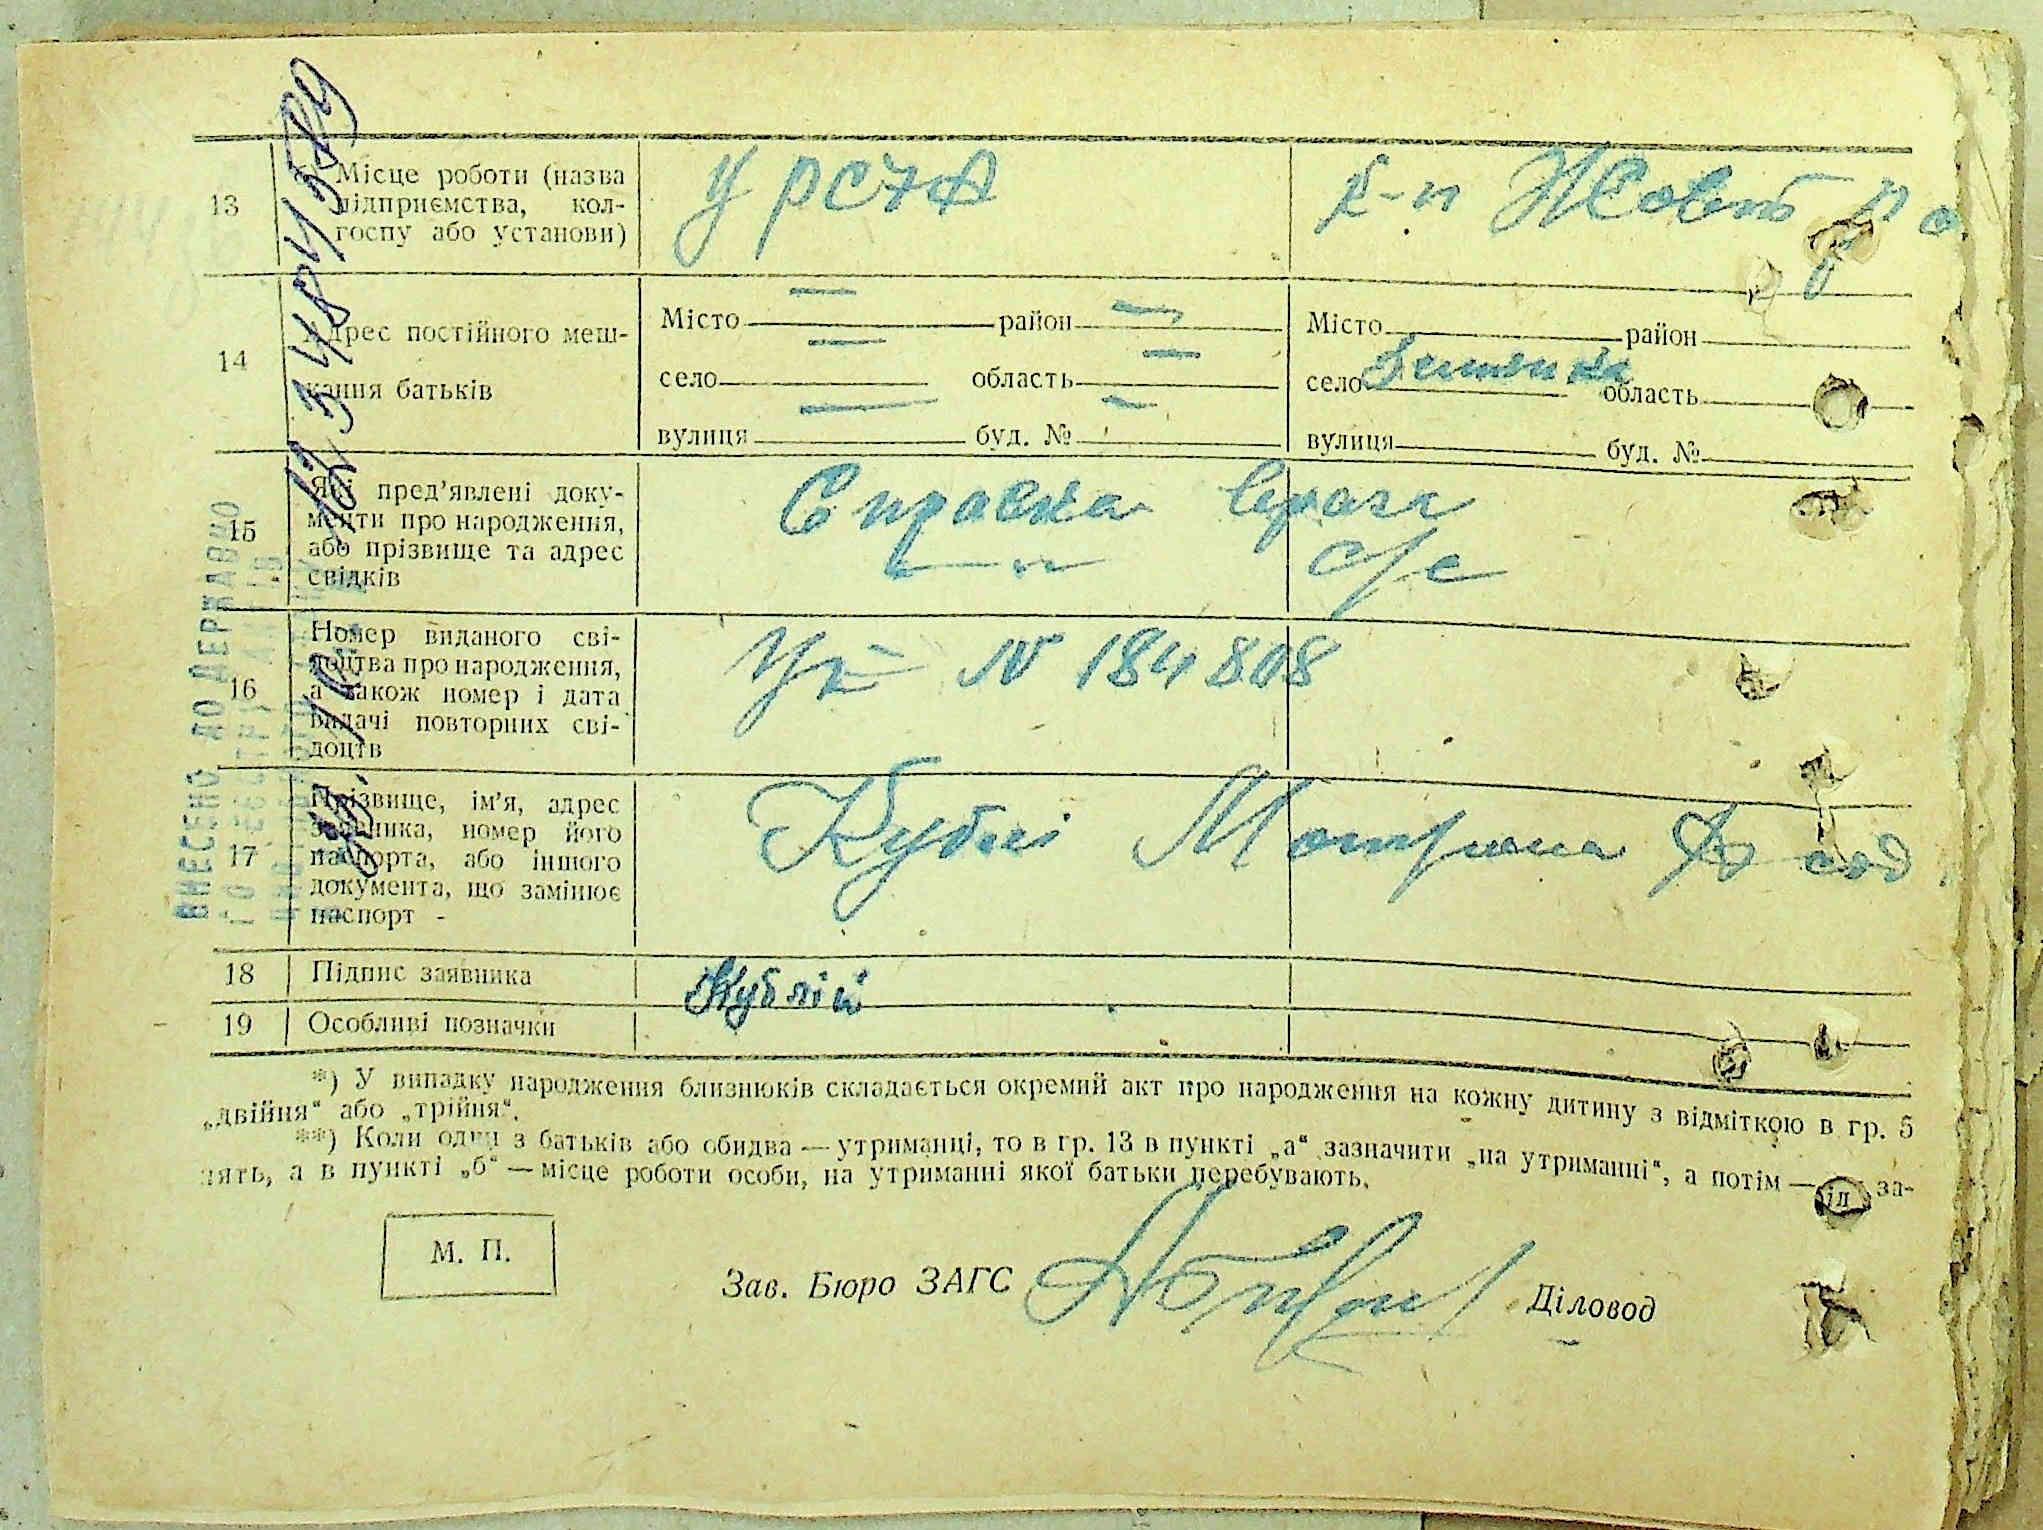 13
Місце роботи (назва
підприємства, кол-
госпу або установи)
У РСЧА
к-п Жовт
14
Адрес постійного меш-
кання батьків
Місто — район —
село — область —
вулиця — буд. № —
Місто район
село область
вулиця буд. №
15
Які пред’явлені доку-
менти про народження,
або прізвище та адрес
свідків
Справка врача
—„— с/с
16
Номер виданого сві-
доцтва про народження,
а також номер і дата
видачі повторних сві-
доцтв
№ 184808
17
Прізвище, ім’я, адрес
заявника, номер його
паспорта, або іншого
документа, що замінює
паспорт -
Кублій Мотрона
18
Підпис заявника
Кублій
19
Особливі позначки
ВНЕСЕНО ДО ДЕРЖАВНО
*) У випадку народження близнюків складається окремий акт про народження на кожну дитину з відміткою в гр. 5
„двійня“ або „трійня“.
**) Коли один з батьків або обидва — утриманці, то в гр. 13 в пункті „а“ зазначити „на утриманні“, а потім — за-
нять, а в пункті „б“ — місце роботи особи, на утриманні якої батьки перебувають.
М. П.
Зав. Бюро ЗАГС
Діловод